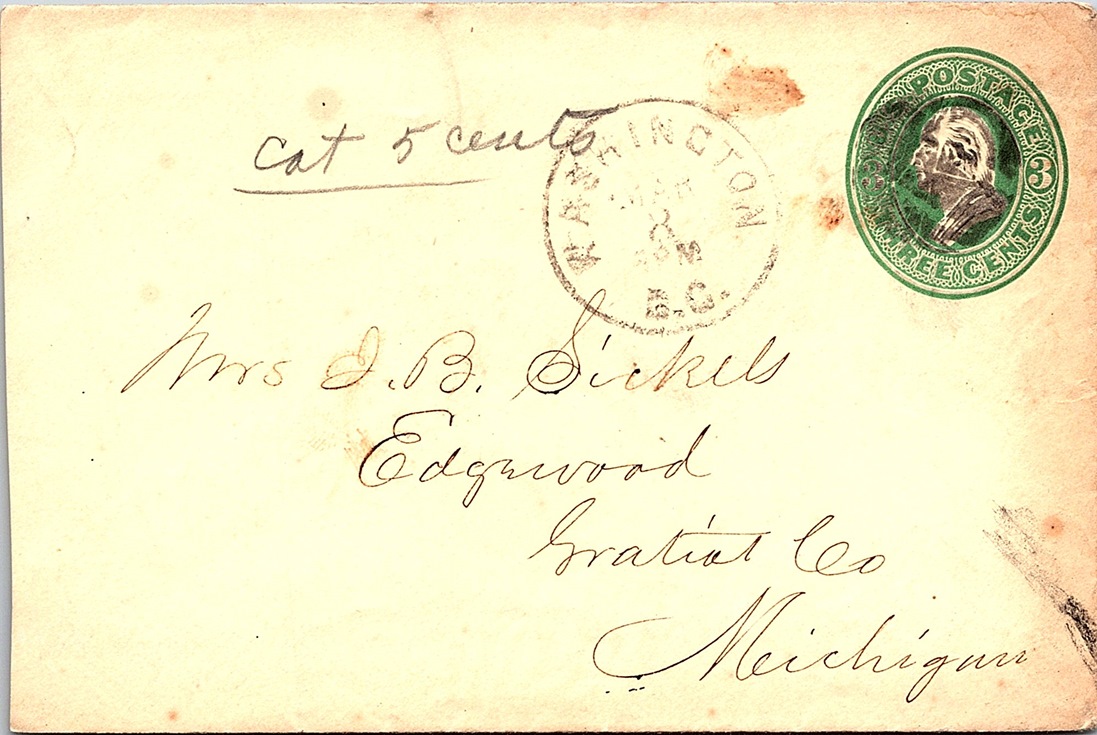 U.S. POSTAGE
3 3
THREE CENTS
cat 5 cents
WASHINGTON
MAR
3
PM
D.C.
Mrs J. B. Sickels
Edgewood
Gratiot Co
Michigan